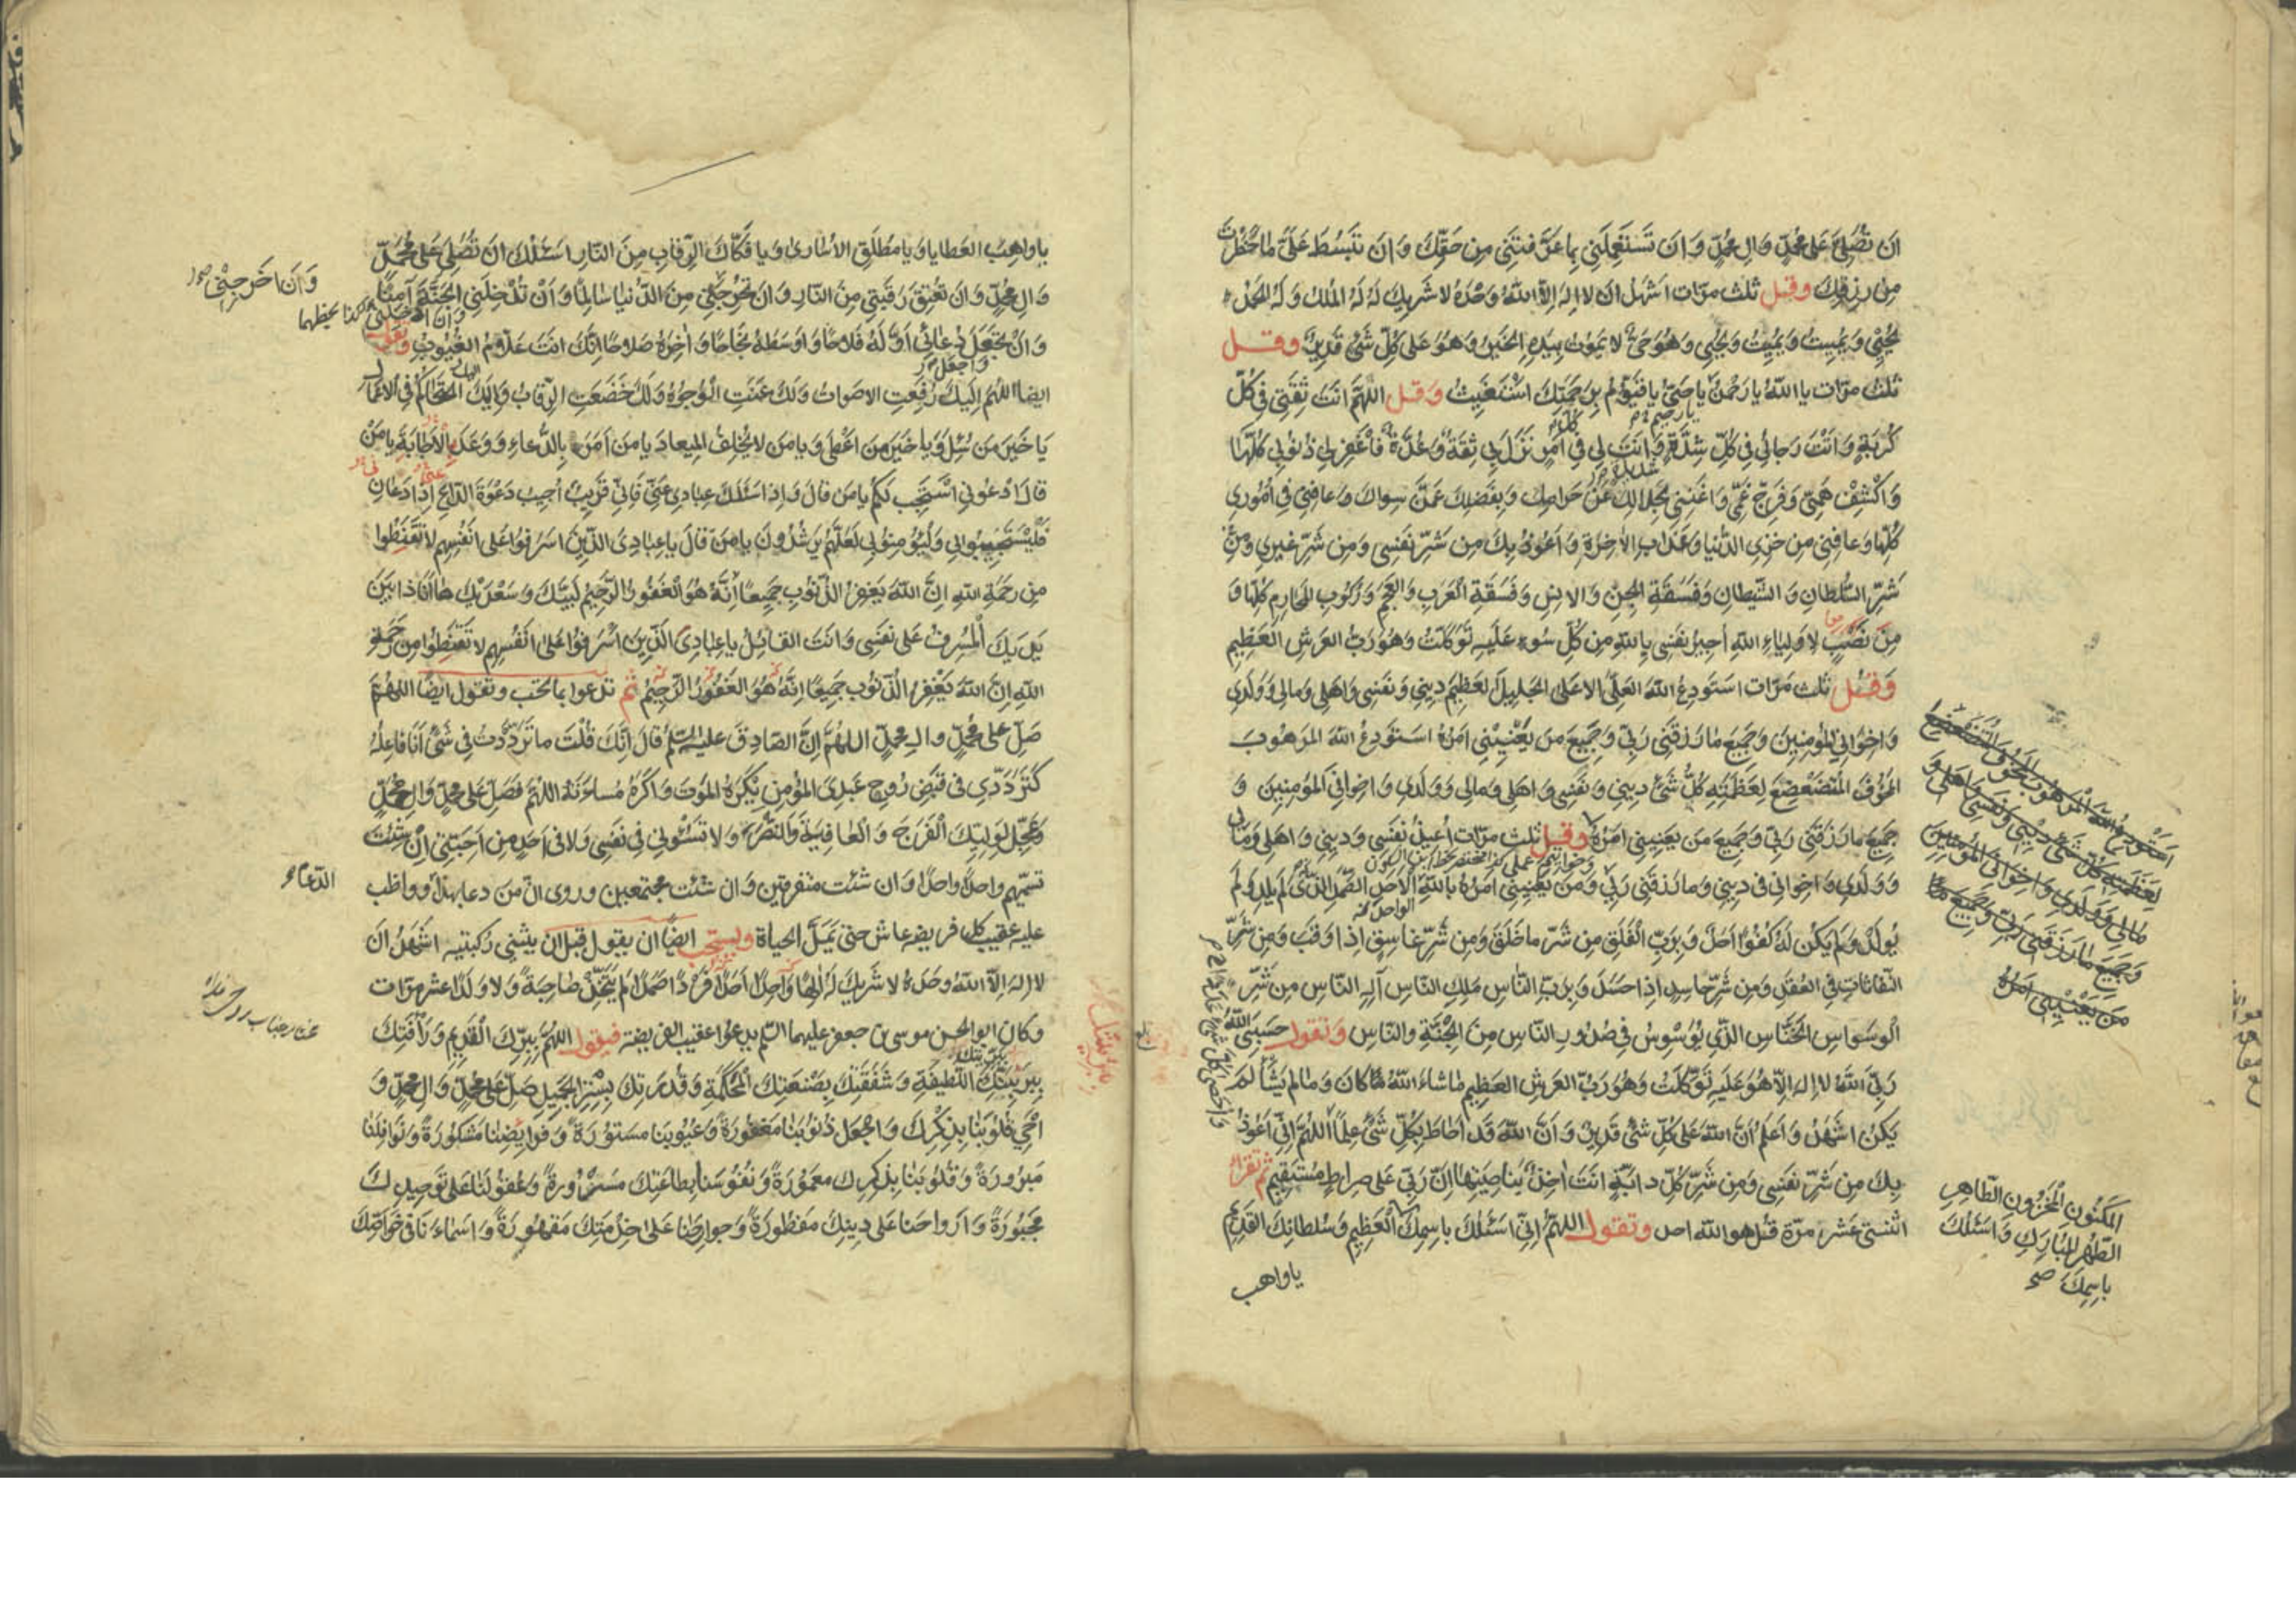 ان تصلي على محمد وال محمد وان تستعملني بما عرفتني من حقك وان تبسط علي ما حظرت
من رزقك وقل ثلث مرات اشهد ان لا اله الا الله وحده لا شريك له له الملك وله الحمد
يحيي ويميت ويميت ويحيي وهو حي لا يموت بيده الخير وهو على كل شئ قدير وقل
ثلث مرات يا الله يا رحمن يا حي يا قيوم برحمتك استغيث وقل اللهم انت ثقتي في كل
يا رحيم
كربة وانت رجائي في كل شدة وانت لي في امر نزل بي ثقة وعدة فاغفر لي ذنوبي كلها
واكشف همي وفرج غمي واغنني بحلالك عن حرامك وبفضلك عمن سواك وعافني في اموري
كلها وعافني من خزي الدنيا وعذاب الاخرة واعوذ بك من شر نفسي ومن شر غيري ومن
شر السلطان و الشيطان وفسقة الجن والانس وفسقة العرب والعجم وركوب المحارم كلها و
من نصب لاولياء الله اجير نفسي بالله من كل سوء عليه توكلت وهو رب العرش العظيم
وقل ثلث مرات استودع الله العلي الاعلى الجليل العظيم ديني ونفسي واهلي ومالي وولدي
واخواني المؤمنين وجميع ما رزقني ربي وجميع من يعنيني امره استودع الله المرهوب
المخوف المتضعضع لعظمته كل شئ ديني ونفسي واهلي ومالي وولدي واخواني المؤمنين و
جميع ما رزقني ربي وجميع من يعنيني امره وقل ثلث مرات اعيذ نفسي وديني واهلي ومالي
وولدي واخواني في ديني وما رزقني ربي ومن يعنيني امره بالله الاحد الصمد الذي لم يلد ولم
الواحد
يولد ولم يكن له كفوا احد وبرب الفلق من شر ما خلق ومن شر غاسق اذا وقب ومن شر
النفاثات في العقد ومن شر حاسد اذا حسد وبرب الناس ملك الناس اله الناس من شر
الوسواس الخناس الذي يوسوس في صدور الناس من الجنة والناس وتقول حسبي الله
ربي الله لا اله الا هو عليه توكلت وهو رب العرش العظيم ما شاء الله كان وما لم يشأ لم
يكن اشهد واعلم ان الله على كل شئ قدير وان الله قد احاط بكل شئ علما اللهم اني اعوذ
بك من شر نفسي ومن شر كل دابة انت اخذ بناصيتها ان ربي على صراط مستقيم ثم تقرأ
اثنتي عشر مرة قل هو الله احد وتقول اللهم اني اسئلك باسمك العظيم وسلطانك القديم
يا واهب
استودع الله المرهوب المخوف المتضعضع
لعظمته كل شئ ديني ونفسي واهلي و
مالي وولدي واخواني المؤمنين
وجميع ما رزقني ربي وجميع
من يعنيني امره
المكنون المخزون الطاهر
الطهر المبارك واسئلك
باسمك صح
يا واهب العطايا ويا مطلق الاسارى ويا فكاك الرقاب من النار اسئلك ان تصلي على محمد
وال محمد وان تعتق رقبتي من النار وان تخرجني من الدنيا سالما وان تدخلني الجنة آمنا
وان تجعل دعائي اوله فلاحا واوسطه نجاحا واخره صلاحا انك انت علام الغيوب وتقول
ايضا اللهم اليك رفعت الاصوات ولك عنت الوجوه ولك خضعت الرقاب واليك التحاكم في الاعمال
يا خير من سئل ويا خير من اعطى ويا من لا يخلف الميعاد يا من امر بالدعاء ووعد بالاجابة يا من
قال ادعوني استجب لكم يا من قال واذا سئلك عبادي عني فاني قريب اجيب دعوة الداع اذا دعان
فليستجيبوا لي وليؤمنوا بي لعلهم يرشدون يا من قال يا عبادي الذين اسرفوا على انفسهم لا تقنطوا
من رحمة الله ان الله يغفر الذنوب جميعا انه هو الغفور الرحيم لبيك وسعديك ها انا ذا بين
يديك المسرف على نفسي وانت القائل يا عبادي الذين اسرفوا على انفسهم لا تقنطوا من رحمة
الله ان الله يغفر الذنوب جميعا انه هو الغفور الرحيم ثم تدعوا بما تحب وتقول ايضا اللهم
صل على محمد وال محمد اللهم ان الصادق عليه السلم قال انك قلت ما ترددت في شئ انا فاعله
كترددي في قبض روح عبدي المؤمن يكره الموت واكره مساءته اللهم فصل على محمد وال محمد
وعجل لوليك الفرج والعافية والنصر ولا تسؤني في نفسي ولا في احد من احبتي ان شئت
تسميهم واحدا واحدا وان شئت متفرقين وان شئت مجتمعين وروى ان من دعا بهذا وواظب
عليه عقيب كل فريضه عاش حتى يمل الحياة ويستحب ايضا ان يقول قبل ان يثني ركبتيه اشهد ان
لا اله الا الله وحده لا شريك له الها واحدا احدا فردا صمدا لم يتخذ صاحبة ولا ولدا عشر مرات
وكان ابو الحسن موسى بن جعفر عليهما السلم يدعوا عقيب الفريضة فيقول اللهم ببرك القديم ورأفتك
ببريتك اللطيفة وشفقتك بصنعتك المحكمة وقدرتك بسترك الجميل صل على محمد وال محمد و
احي قلوبنا بذكرك واجعل ذنوبنا مغفورة وعيوبنا مستورة وفرايضنا مشكورة ونوافلنا
مبرورة وقلوبنا بذكرك معمورة ونفوسنا بطاعتك مسرورة وعقولنا على توحيدك
مجبورة وارواحنا على دينك مفطورة وجوارحنا على خدمتك مقهورة واسماءنا في خواصك
الدعاء